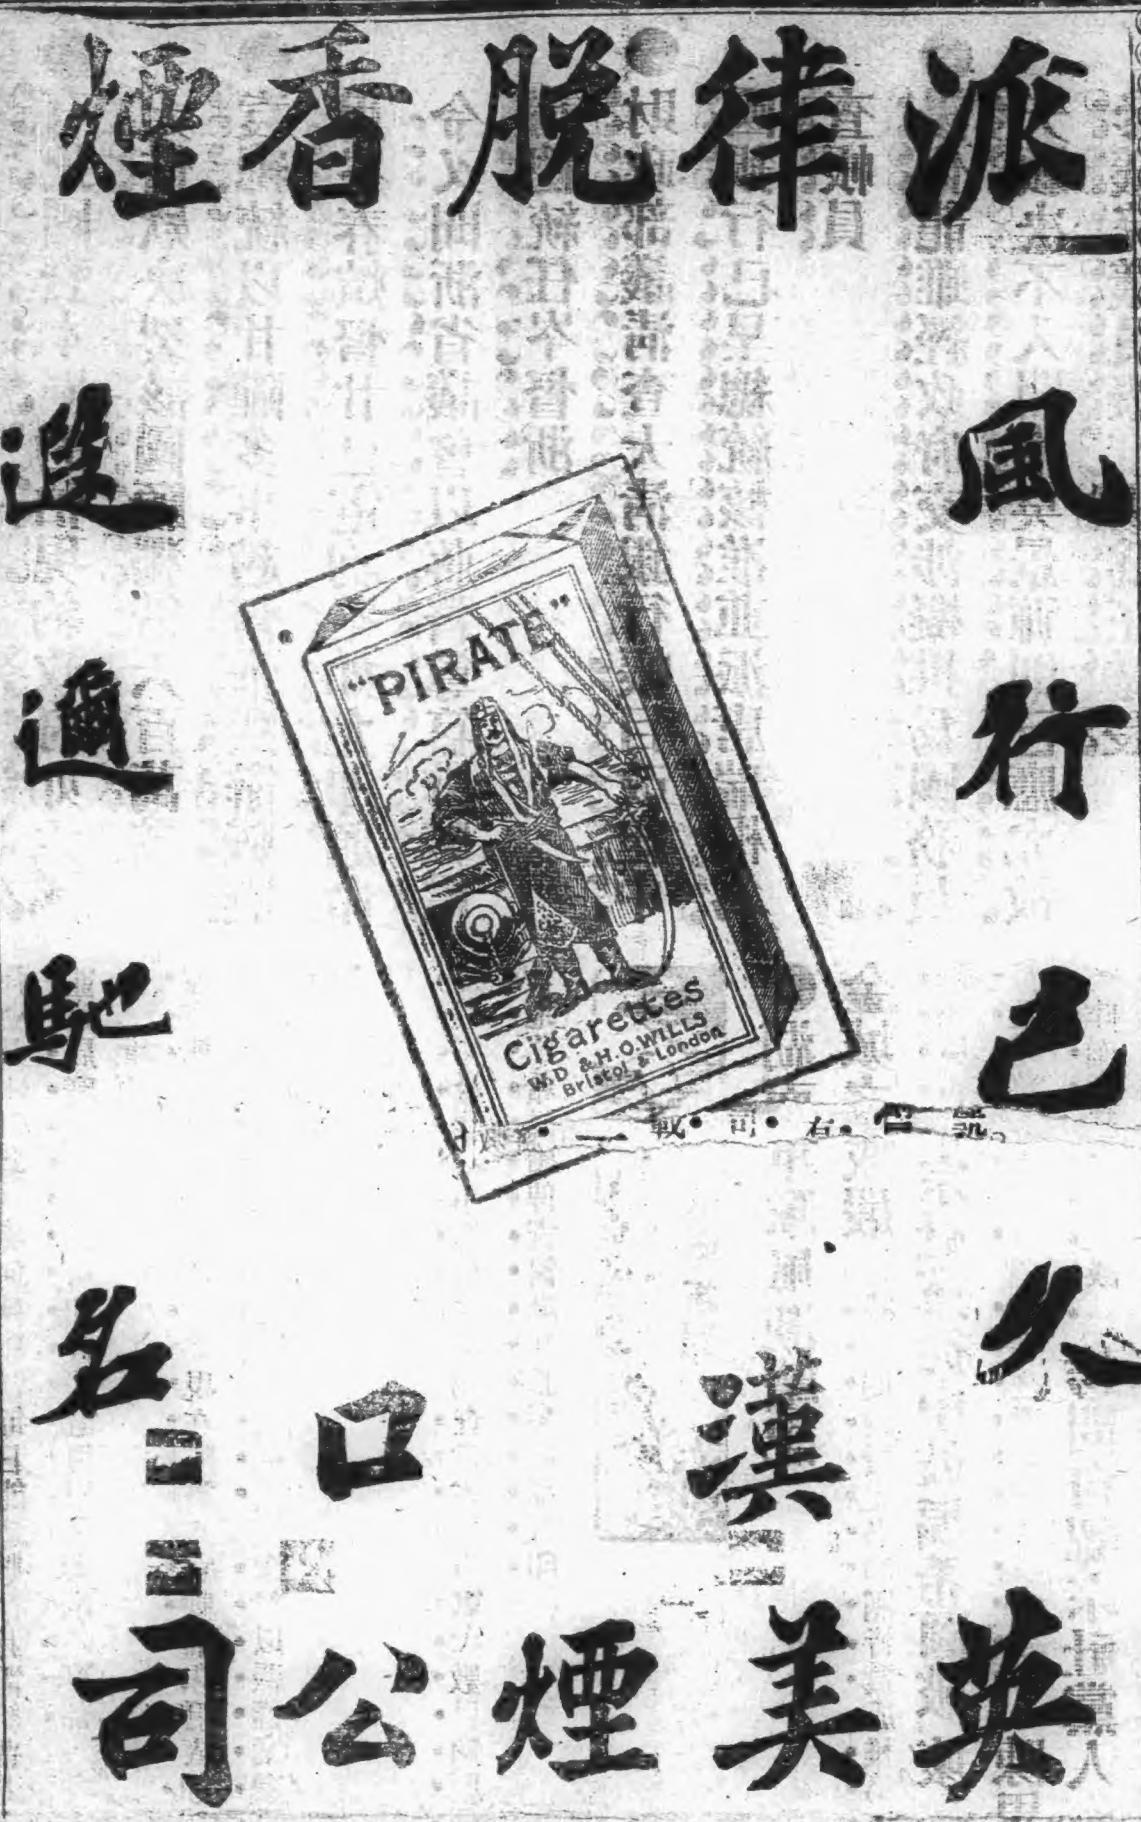 派律脫香煙
風行已久
遐邇馳名
"PIRATE"
Cigarettes
W.D & H.O.WILLS
Bristol & London
漢口
英美煙公司